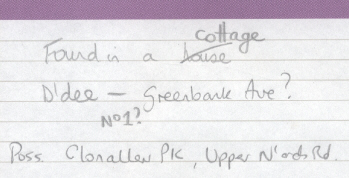 cottage
Found in a house
D'dee – Greenbank Ave?
No1?
Poss. Clonallen Pk, Upper N'ards Rd.